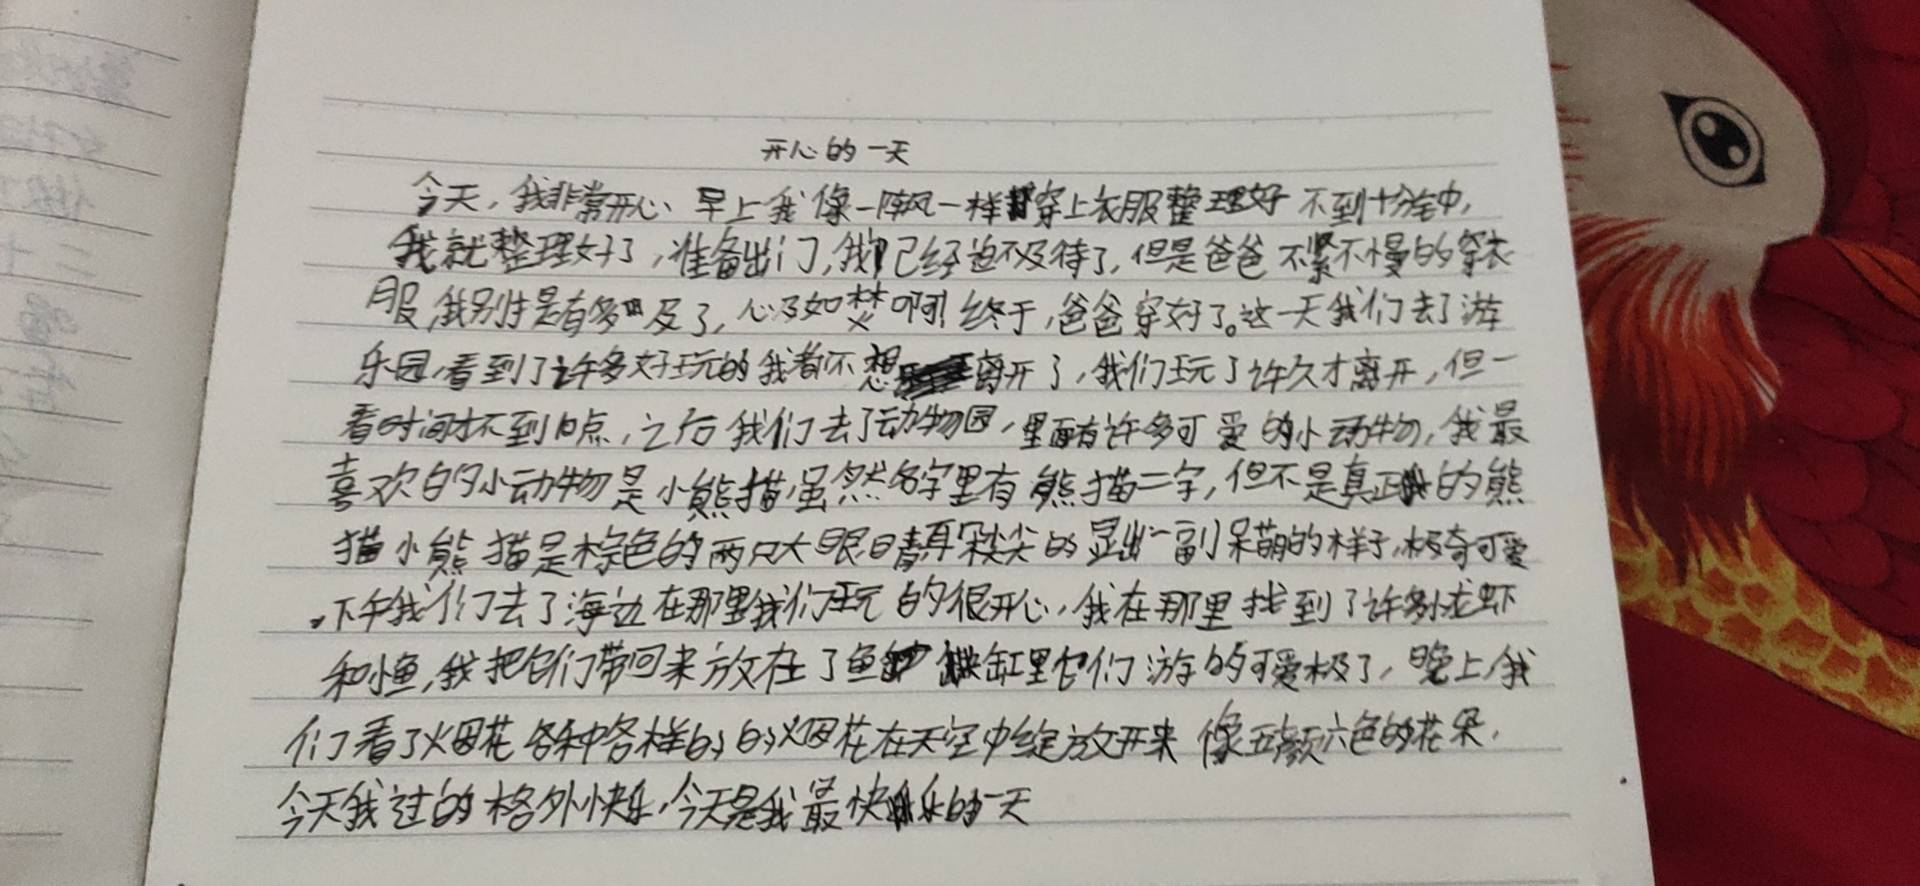 开心的一天
今天，我非常开心、早上我像一阵风一样穿上衣服整理好 不到十分钟，
我就整理好了，准备出门，我已经迫不及待了，但是爸爸不紧不慢的穿衣
服，我别提有多 及了，心及如焚啊！终于，爸爸穿好了。这一天我们去了游
乐园，看到了许多好玩的我都不想离开了，我们玩了许久才离开，但一
看时间才不到10点，之后我们去了动物园，里面有许多可爱的小动物，我最
喜欢的小动物是小熊猫，虽然名字里有熊猫二字，但不是真正的熊
猫小熊猫是棕色的两只大眼睛耳朵尖尖的显出一副呆萌的样子，极奇可爱
。下午我们去了海边在那里我们玩的很开心，我在那里找到了许多小龙虾
和小鱼，我把它们带回来放在了鱼缸里它们游的可爱极了，晚上，我
们看了烟花各种各样的的烟花在天空中绽放开来 像五颜六色的花朵，
今天我过的格外快乐，今天是我最快乐的一天